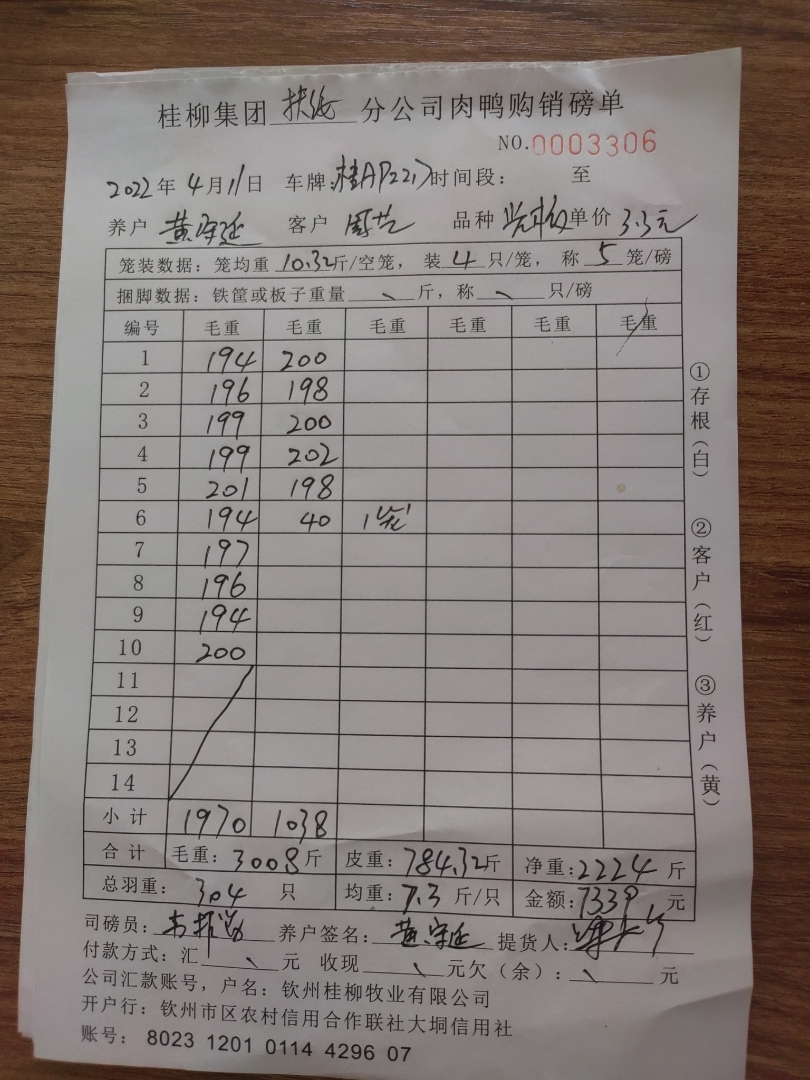 桂柳集团扶绥分公司肉鸭购销磅单
NO.0003306
2022年4月11日 车牌:桂AP2217时间段: 至
养户 黄守延 客户 周芒 品种 单价 3.3元
笼装数据:笼均重 10.32斤/空笼,装 4 只/笼,称 5 笼/磅
捆脚数据:铁筐或板子重量 、 斤,称 、 只/磅
编号 毛重 毛重 毛重 毛重 毛重 毛重
1 194 200
2 196 198
3 199 200
4 199 202
5 201 198
6 194 40 1笼
7 197
8 196
9 194
10 200
11
12
13
14
小计 1970 1038
合计 毛重:3008斤 皮重:784.32斤 净重:2224斤
总羽重:304 只 均重:7.3斤/只 金额:7339元
司磅员: 养户签名:黄守延 提货人:
付款方式:汇 、 元 收现 、 元欠(余): 、 元
公司汇款账号,户名:钦州桂柳牧业有限公司
开户行:钦州市区农村信用合作联社大垌信用社
账号: 8023 1201 0114 4296 07
①存根(白)
②客户(红)
③养户(黄)